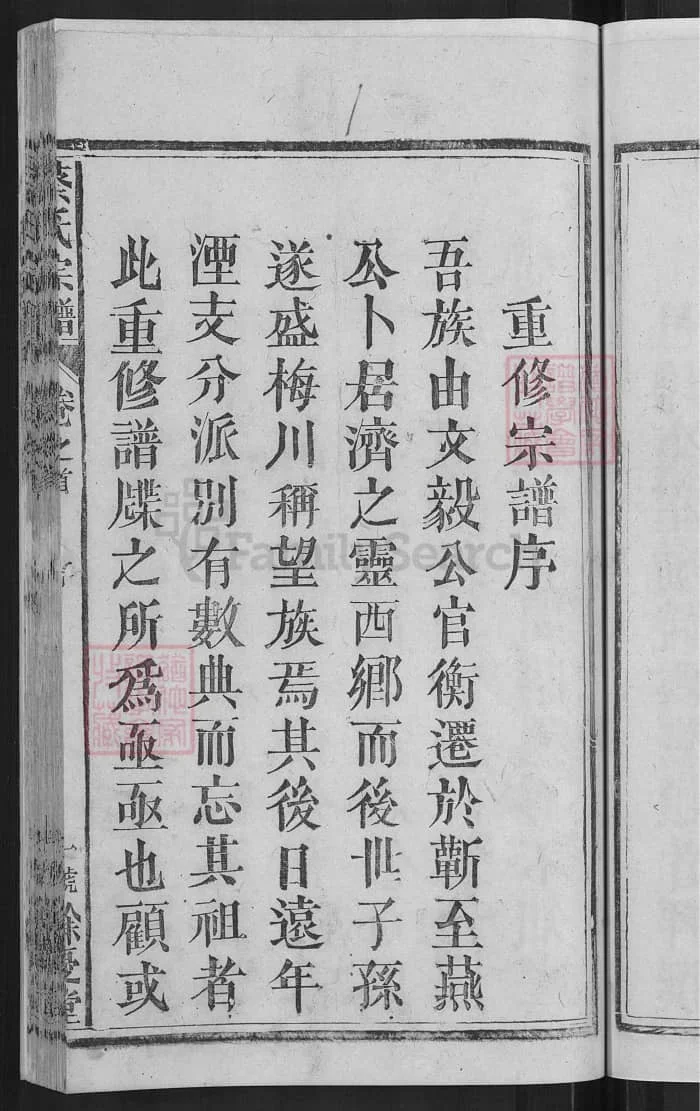 重修宗譜序
吾族由文毅公官衡遷於蘄至燕
公卜居濟之靈西鄉而後世子孫
遂盛梅川稱望族焉其後日遠年
湮支分派別有數典而忘其祖者
此重修譜牒之所爲亟亟也顧或
蔡氏宗譜 卷之首
FamilySearch